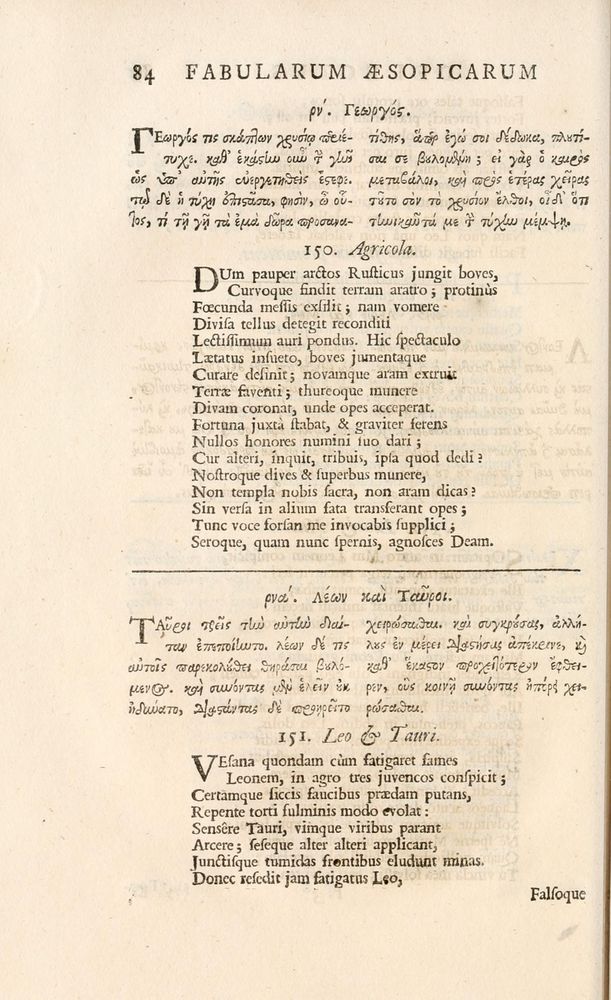 84 FABULARUM ÆSOPICARUM
ρν΄. Γεωργός.
ΓΕωργός τις σκάπτων χρυσίῳ περιέ-
τυχε. καθ᾽ ἑκάστην οὖν τὴν γῆν
ὡς ὑπ᾽ αὐτῆς εὐεργετηθεὶς ἔστεφε.
τῷ δὲ ἡ τύχη ἐπιστᾶσα, φησὶν, ὦ οὗ-
τος, τί τῇ γῇ τὰ ἐμὰ δῶρα προσανα-
τίθης, ἅπερ ἐγώ σοι δέδωκα, πλουτί-
σαι σε βουλομένη; εἰ γὰρ ὁ καιρὸς
μεταβάλοι, καὶ πρὸς ἑτέρας χεῖρας
τοῦτο σὸν τὸ χρυσίον ἔλθοι, οἶδ᾽ ὅτι
τηνικαῦτά με τὴν τύχην μέμψῃ.
150. Agricola.
DUm pauper arctos Rusticus jungit boves,
Curvoque findit terram aratro; protinùs
Fœcunda messis exsilit; nam vomere
Divisa tellus detegit reconditi
Lectissimum auri pondus. Hic spectaculo
Lætatus insueto, boves jumentaque
Curare desinit; novamque aram extruit
Terræ faventi; thureoque munere
Divam coronat, unde opes acceperat.
Fortuna juxtà stabat, & graviter ferens
Nullos honores numini suo dari;
Cur alteri, inquit, tribuis, ipsa quod dedi?
Nostroque dives & superbus munere,
Non templa nobis sacra, non aram dicas?
Sin versa in alium fata transferant opes;
Tunc voce forsan me invocabis supplici;
Seroque, quam nunc spernis, agnosces Deam.
ρνα΄. Λέων καὶ Ταῦροι.
ΤΑῦροι τρεῖς τὴν αὐτὴν δίαι-
ταν ἐπεποίηντο. λέων δέ τις
αὐτοῖς παρεκολούθει θηρᾶσαι βουλό-
μενος. καὶ συνόντας μὲν ἑλεῖν οὐκ
ἠδύνατο, διαστάντας δὲ προῃρεῖτο
χειρώσασθαι. καὶ συγκρούσας, ἀλλή-
λους ἐν μέρει διαστήσας ἀπέκρινε, καὶ
καθ᾽ ἕκαστον προχειρότερον ἔφθει-
ρεν, οὓς κοινῇ συνόντας ἠπόρει χει-
ρώσασθαι.
151. Leo & Tauri.
VEsana quondam cùm fatigaret fames
Leonem, in agro tres juvencos conspicit;
Certamque siccis faucibus prædam putans,
Repente torti fulminis modo evolat:
Sensêre Tauri, vimque viribus parant
Arcere; seseque alter alteri applicant,
Junctisque tumidas frontibus eludunt minas.
Donec resedit jam fatigatus Leo,
Falsoque